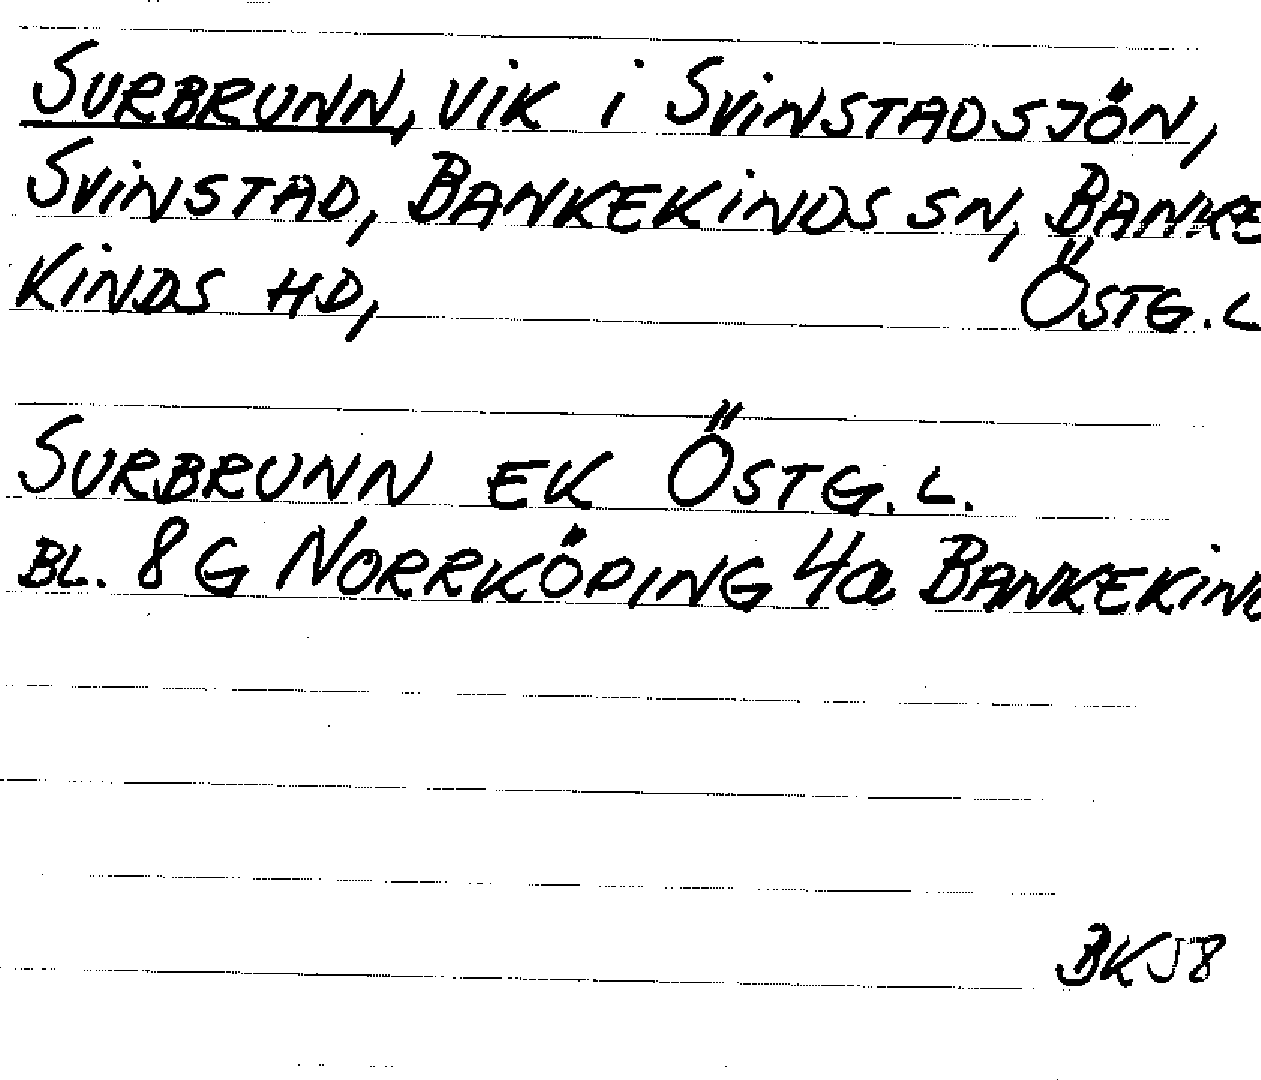 SURBRUNN, VIK I SVINSTADSJÖN,
SVINSTAD, BANKEKINDS SN, BANKE
KINDS HD, ÖSTG.L
SURBRUNN EK ÖSTG.L.
BL. 8G NORRKÖPING 4a BANKEKIND
BK58